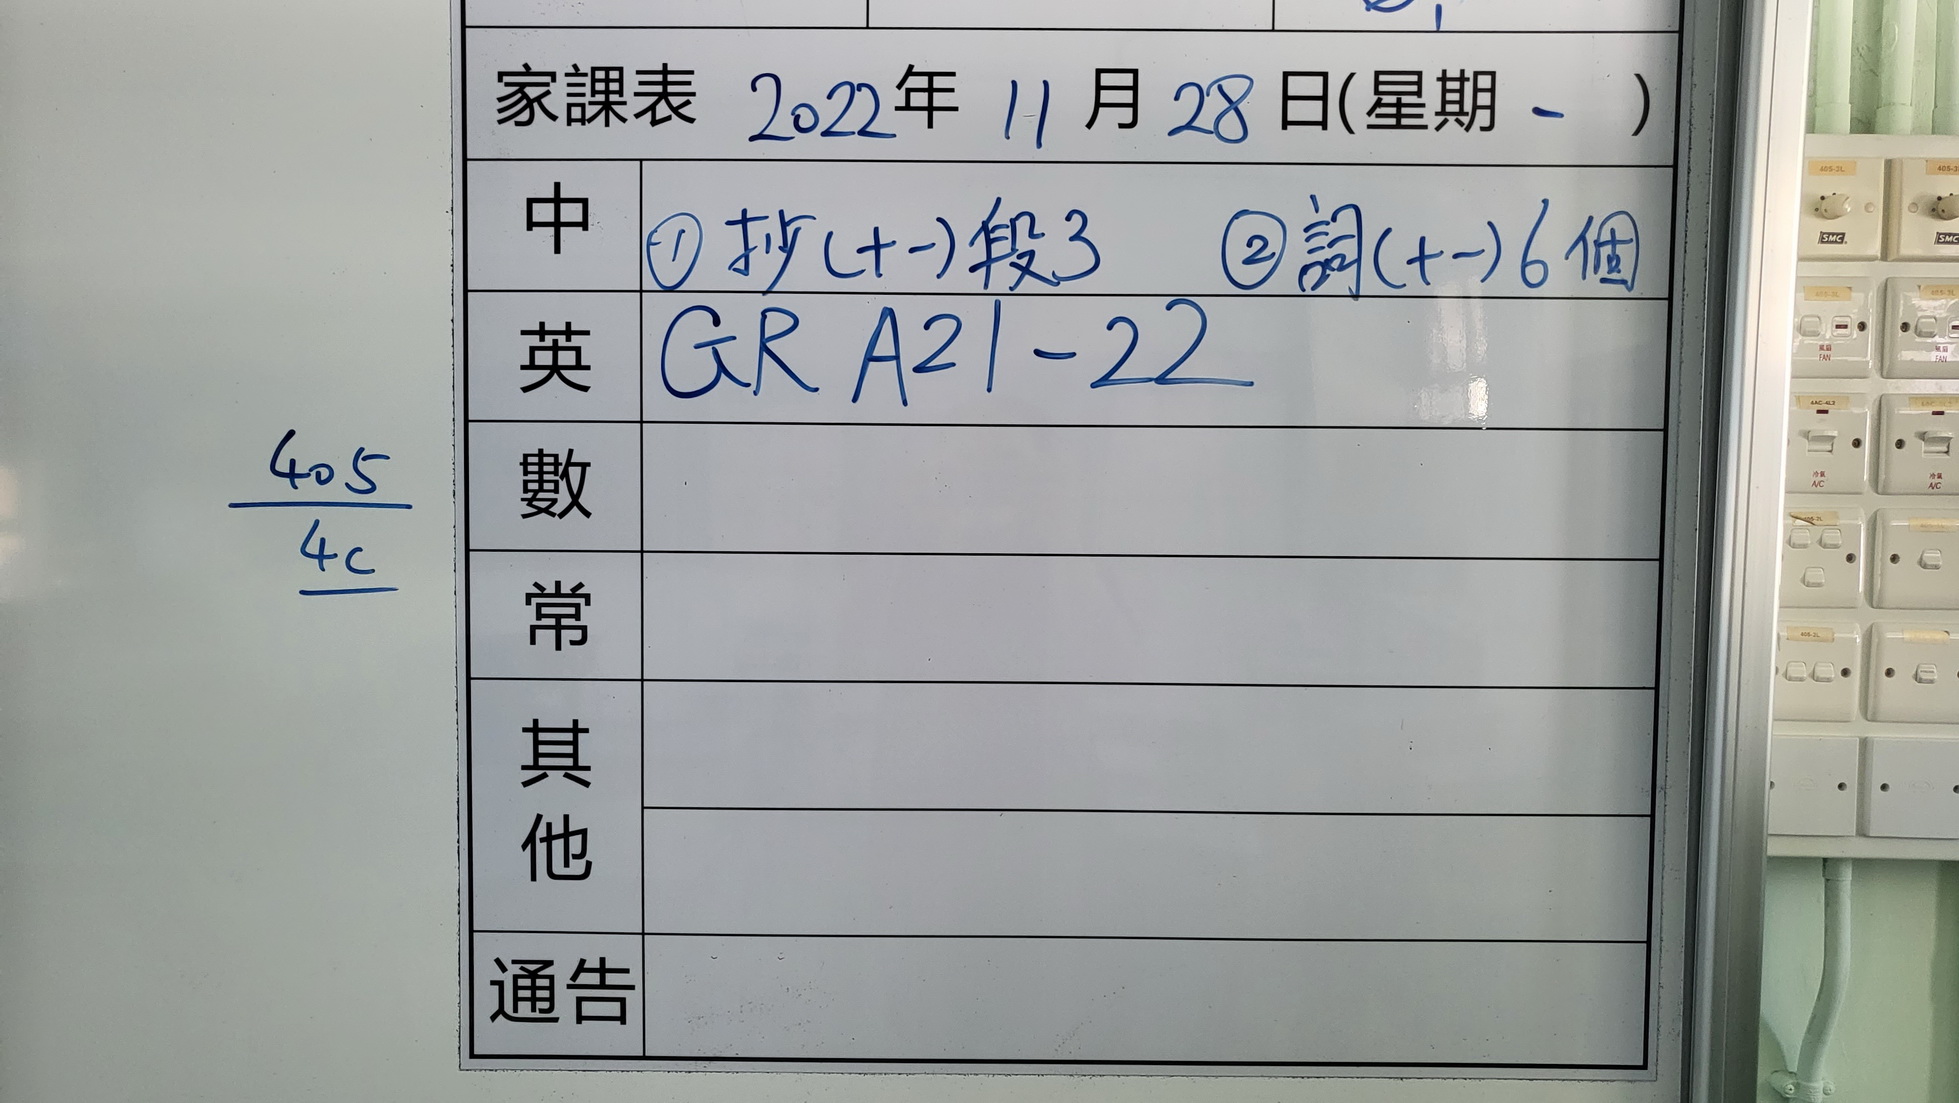 家課表 2022年 11月28日(星期一)
中 ①抄(十一)段3 ②詞(十一)6個
英 GR A21-22
數
常
其他
通告
405
4C
405-3L
SMC
SMC
FAN
FAN
4AC-4L2
冷氣
A/C
冷氣
A/C
405-2L